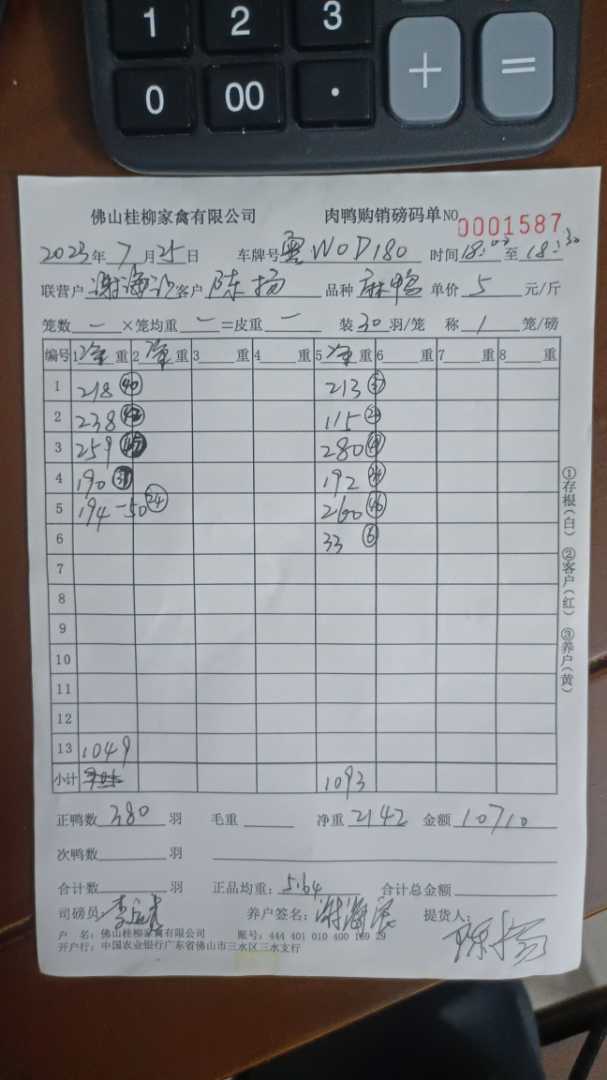 1 2 3 + =
0 00 ·
佛山桂柳家禽有限公司 肉鸭购销磅码单 NO 0001587
2023年7月25日 车牌号 粤W0D180 时间 18:02 至 18:30
联营户 谢海 客户 陈扬 品种 麻鸭 单价 5 元/斤
笼数 一 ×笼均重 一 =皮重 一 装 30 羽/笼 称 1 笼/磅
编号 1 净 重 2 净 重 3 重 4 重 5 净 重 6 重 7 重 8 重
1 218 40 213 37
2 238 42 115
3 259 280
4 190 192
5 194-50 24 260 46
6 33 6
7
8
9
10
11
12
13 1049
小计 1093
正鸭数 380 羽 毛重 净重 2142 金额 10710
次鸭数 羽
合计数 羽 正品均重: 5.64 合计总金额
司磅员 李 养户签名: 谢海 提货人: 陈扬
户 名: 佛山桂柳家禽有限公司 账号: 444 401 010 400 169 29
开户行: 中国农业银行广东省佛山市三水区三水支行
①存根(白) ②客户(红) ③养户(黄)